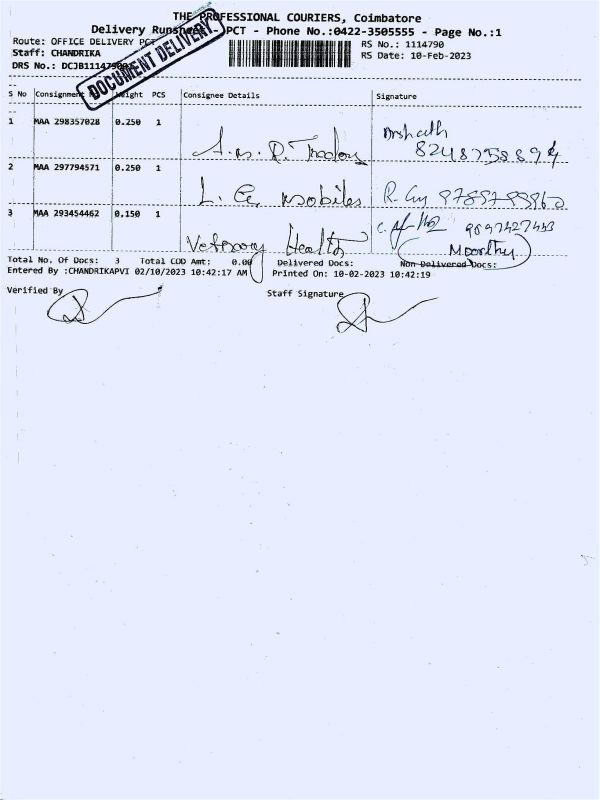 THE PROFESSIONAL COURIERS, Coimbatore
Delivery Runsheet - PCT - Phone No.:0422-3505555 - Page No.:1
Route: OFFICE DELIVERY PCT
RS No.: 1114790
Staff: CHANDRIKA
RS Date: 10-Feb-2023
DRS No.: DCJB1114790
DOCUMENT DELIVERY
S No Consignment Weight PCS Consignee Details Signature
1 MAA 298357028 0.250 1 Traders
2 MAA 297794571 0.250 1 mobiles
3 MAA 293454462 0.150 1 Health
Moorthy
Total No. Of Docs: 3 Total COD Amt: 0.00 Delivered Docs: Non Delivered Docs:
Entered By :CHANDRIKAPVI 02/10/2023 10:42:17 AM Printed On: 10-02-2023 10:42:19
Verified By Staff Signature